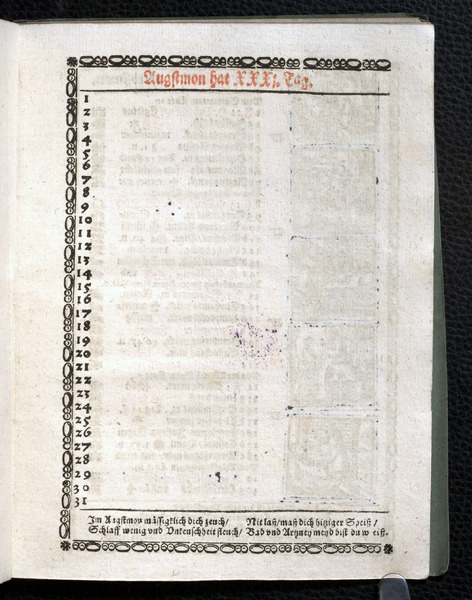 Augstmon hat XXXj. Tag.
1
2
3
4
5
6
7
8
9
10
11
12
13
14
15
16
17
18
19
20
21
22
23
24
25
26
27
28
29
30
31
Im Augstmon mässigklich dich zeuch/ Nit laß/ maß dich hitziger Speiß/
Schlaff wenig vnd Vnkeuschheit fleuch/ Bad vnd Artzney meyd bist du weiß.